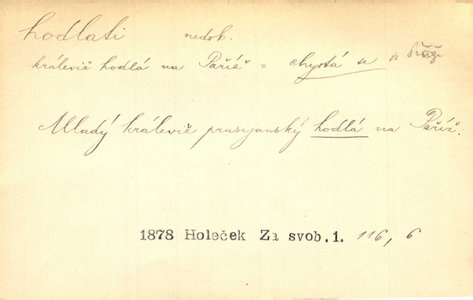 hodlati nedok.
králevič hodlá na Paříž = chystá se do Paříže
Mladý králevič prusijanský hodlá na Paříž.
1878 Holeček Za svob.1. 116, 6